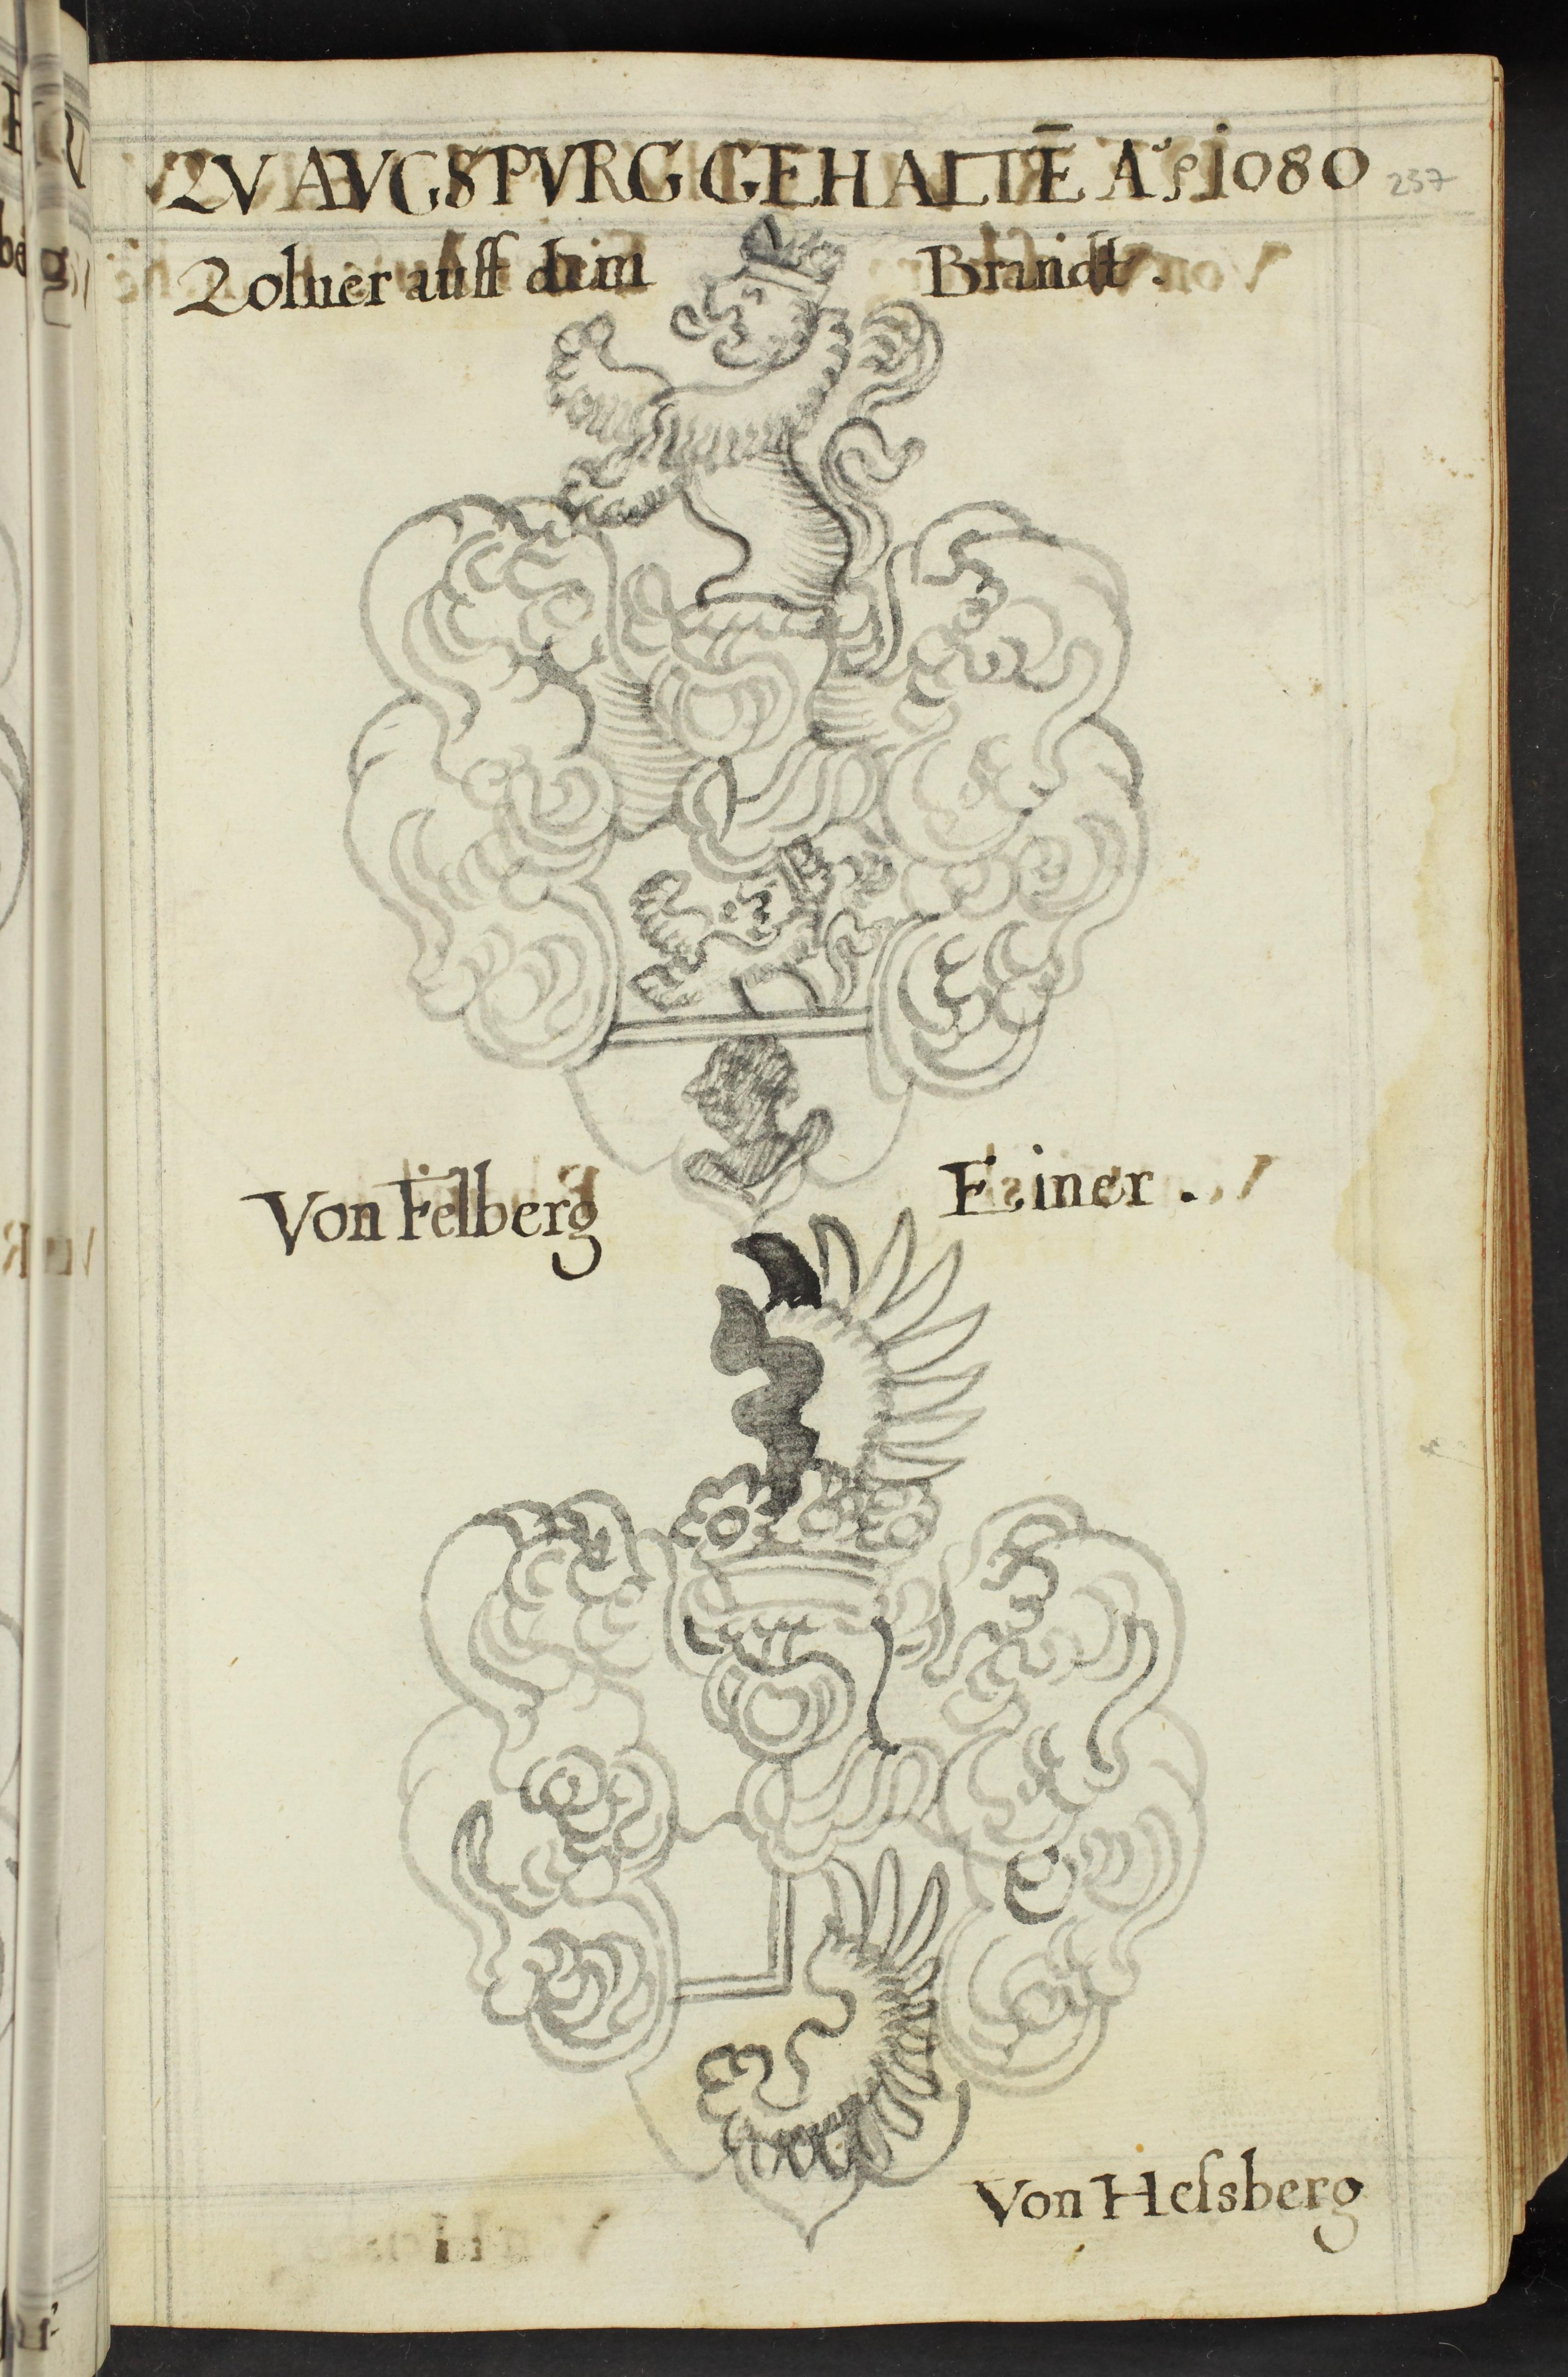 ZV AVGSPVRG GEHALTĒ Aº 1080
257
Zolner auff dem Brandt.
Von Felberg Einer.
Von Hessberg